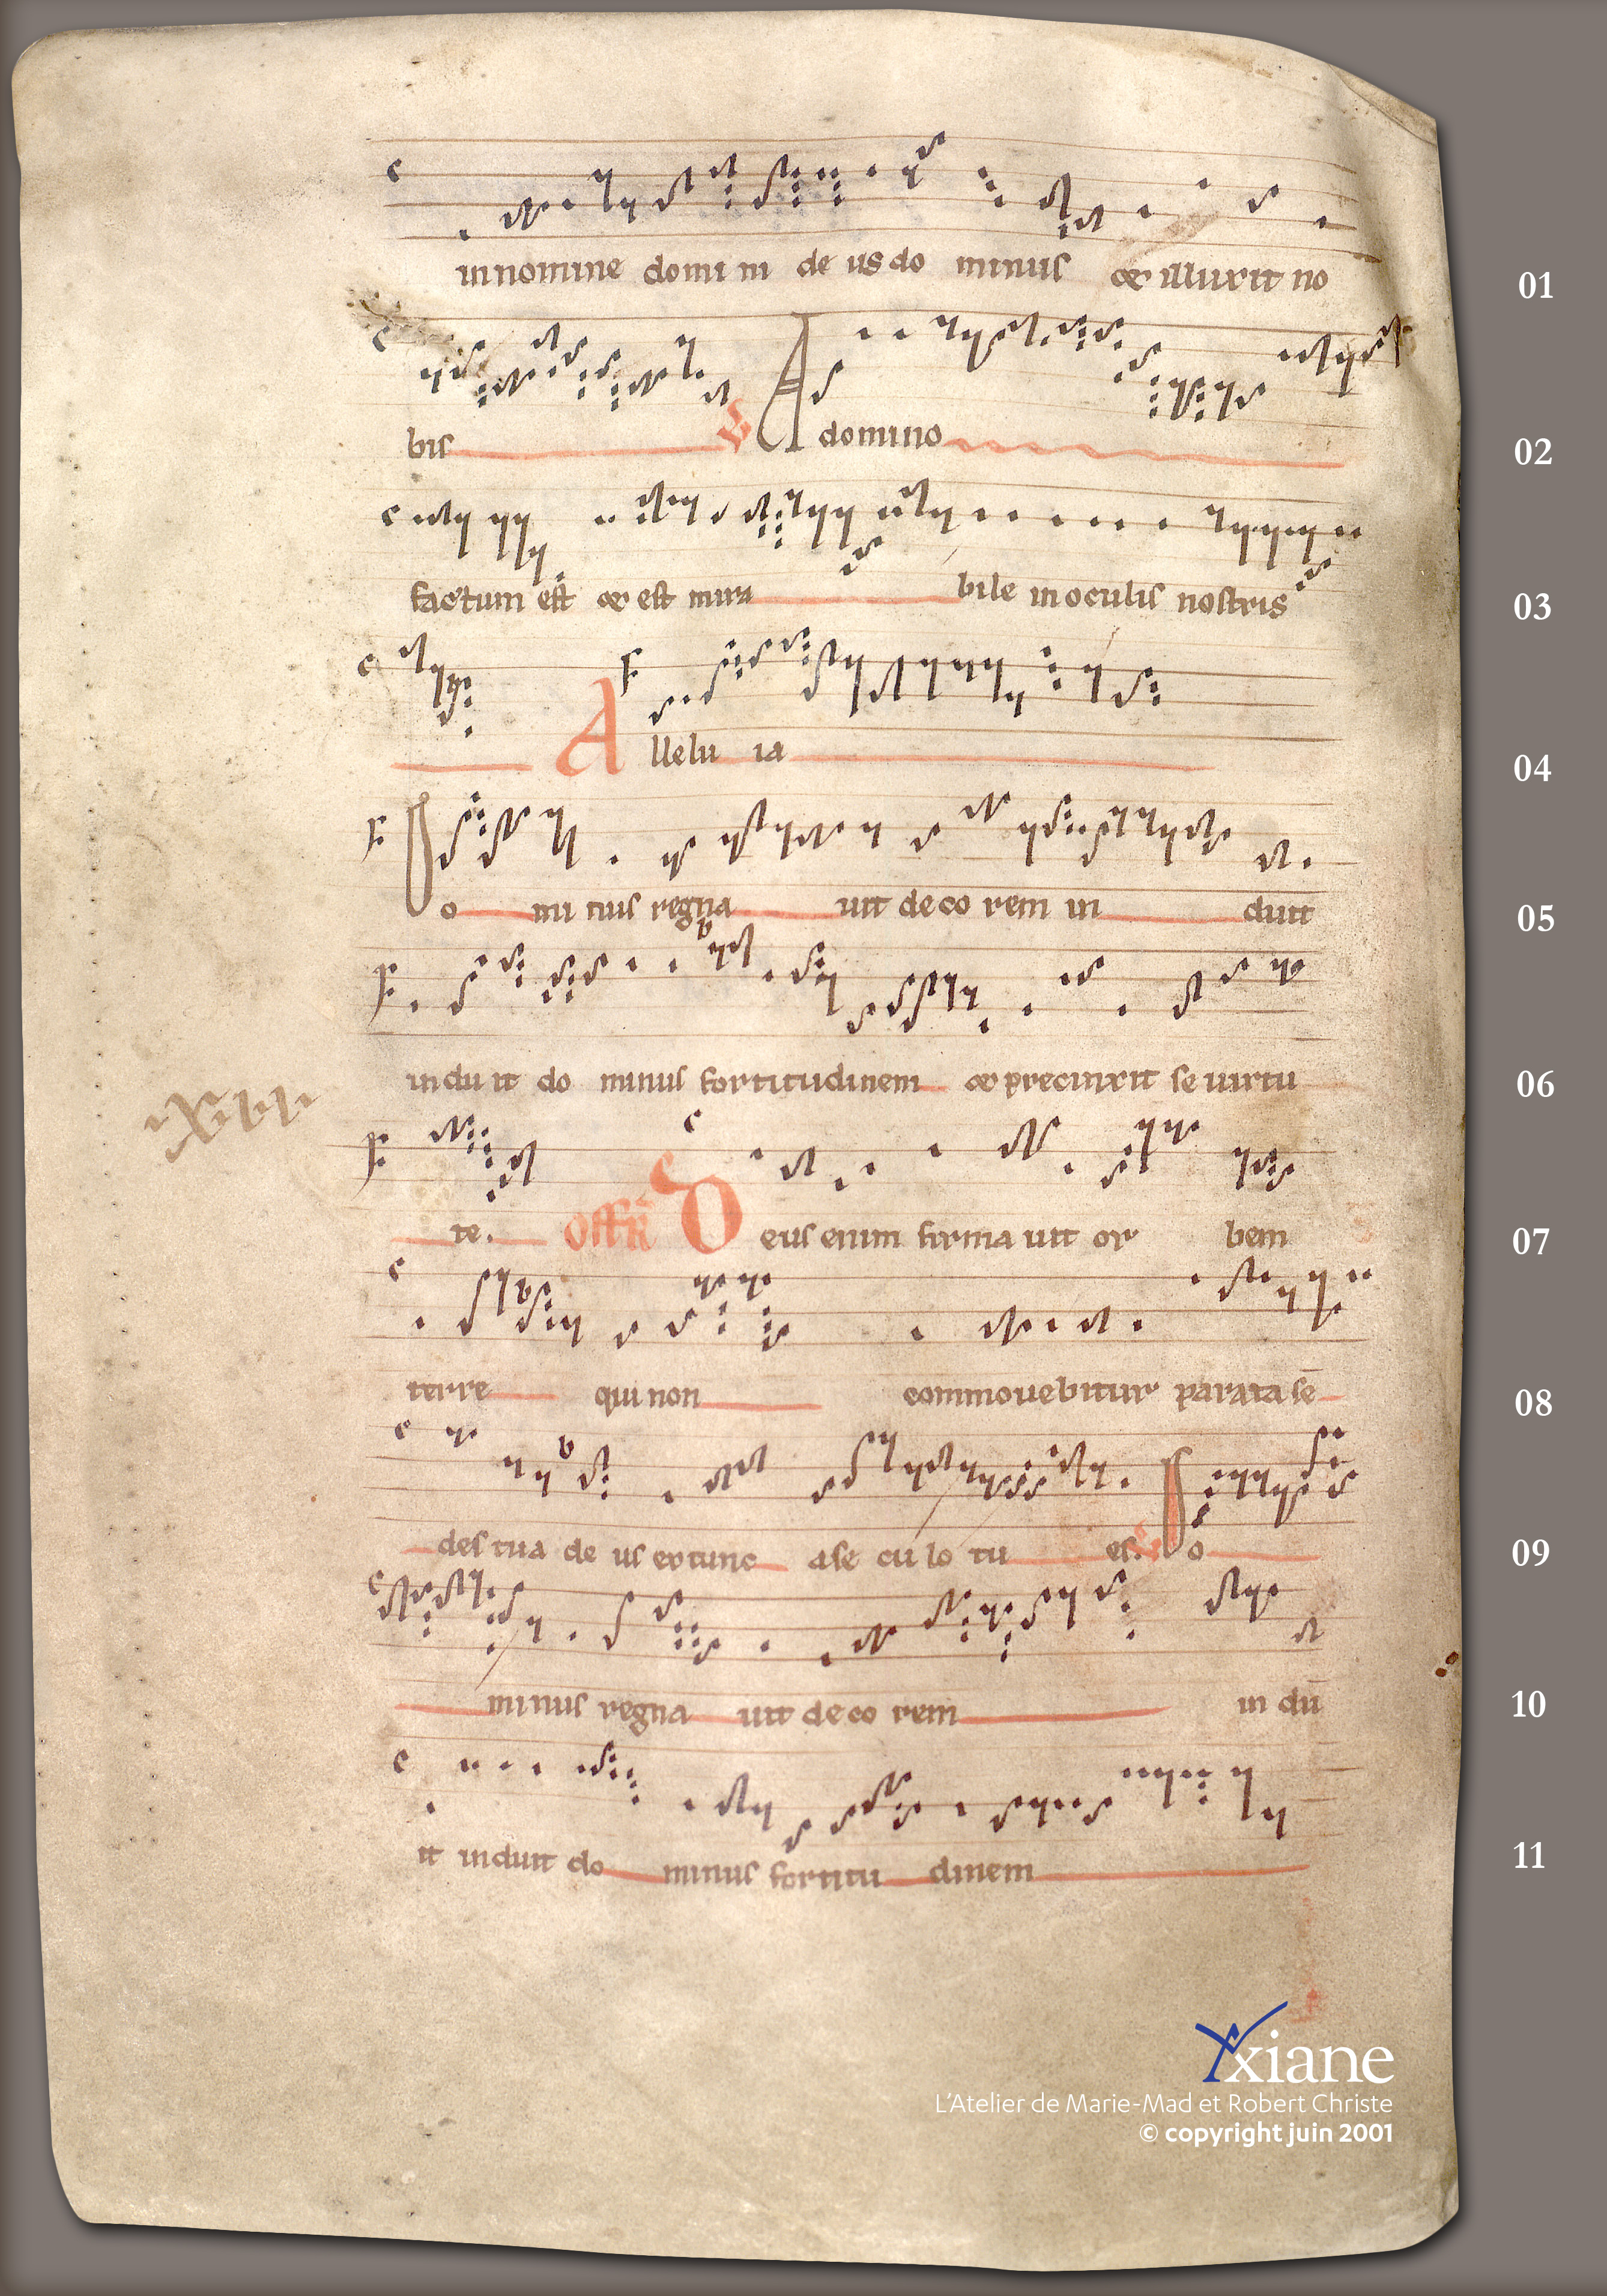 in nomine domi ni de us do minus & illuxit no
01
bis ℣ A domino
02
factum est & est mira bile in oculis nostris
03
A llelu ia
04
D o mi nus regna uit de co rem in duit
05
indu it do minus fortitudinem & precinxit se uirtu
06
lxvii
te. Offr̄ D eus enim firma uit or bem
07
terre qui non commouebitur parata se
08
des tua de us ex tunc a se cu lo tu es. ℣ D o
09
minus regna uit de co rem in du
10
it induit do minus fortitu dinem
11
Yxiane
L'Atelier de Marie-Mad et Robert Christe
© copyright juin 2001